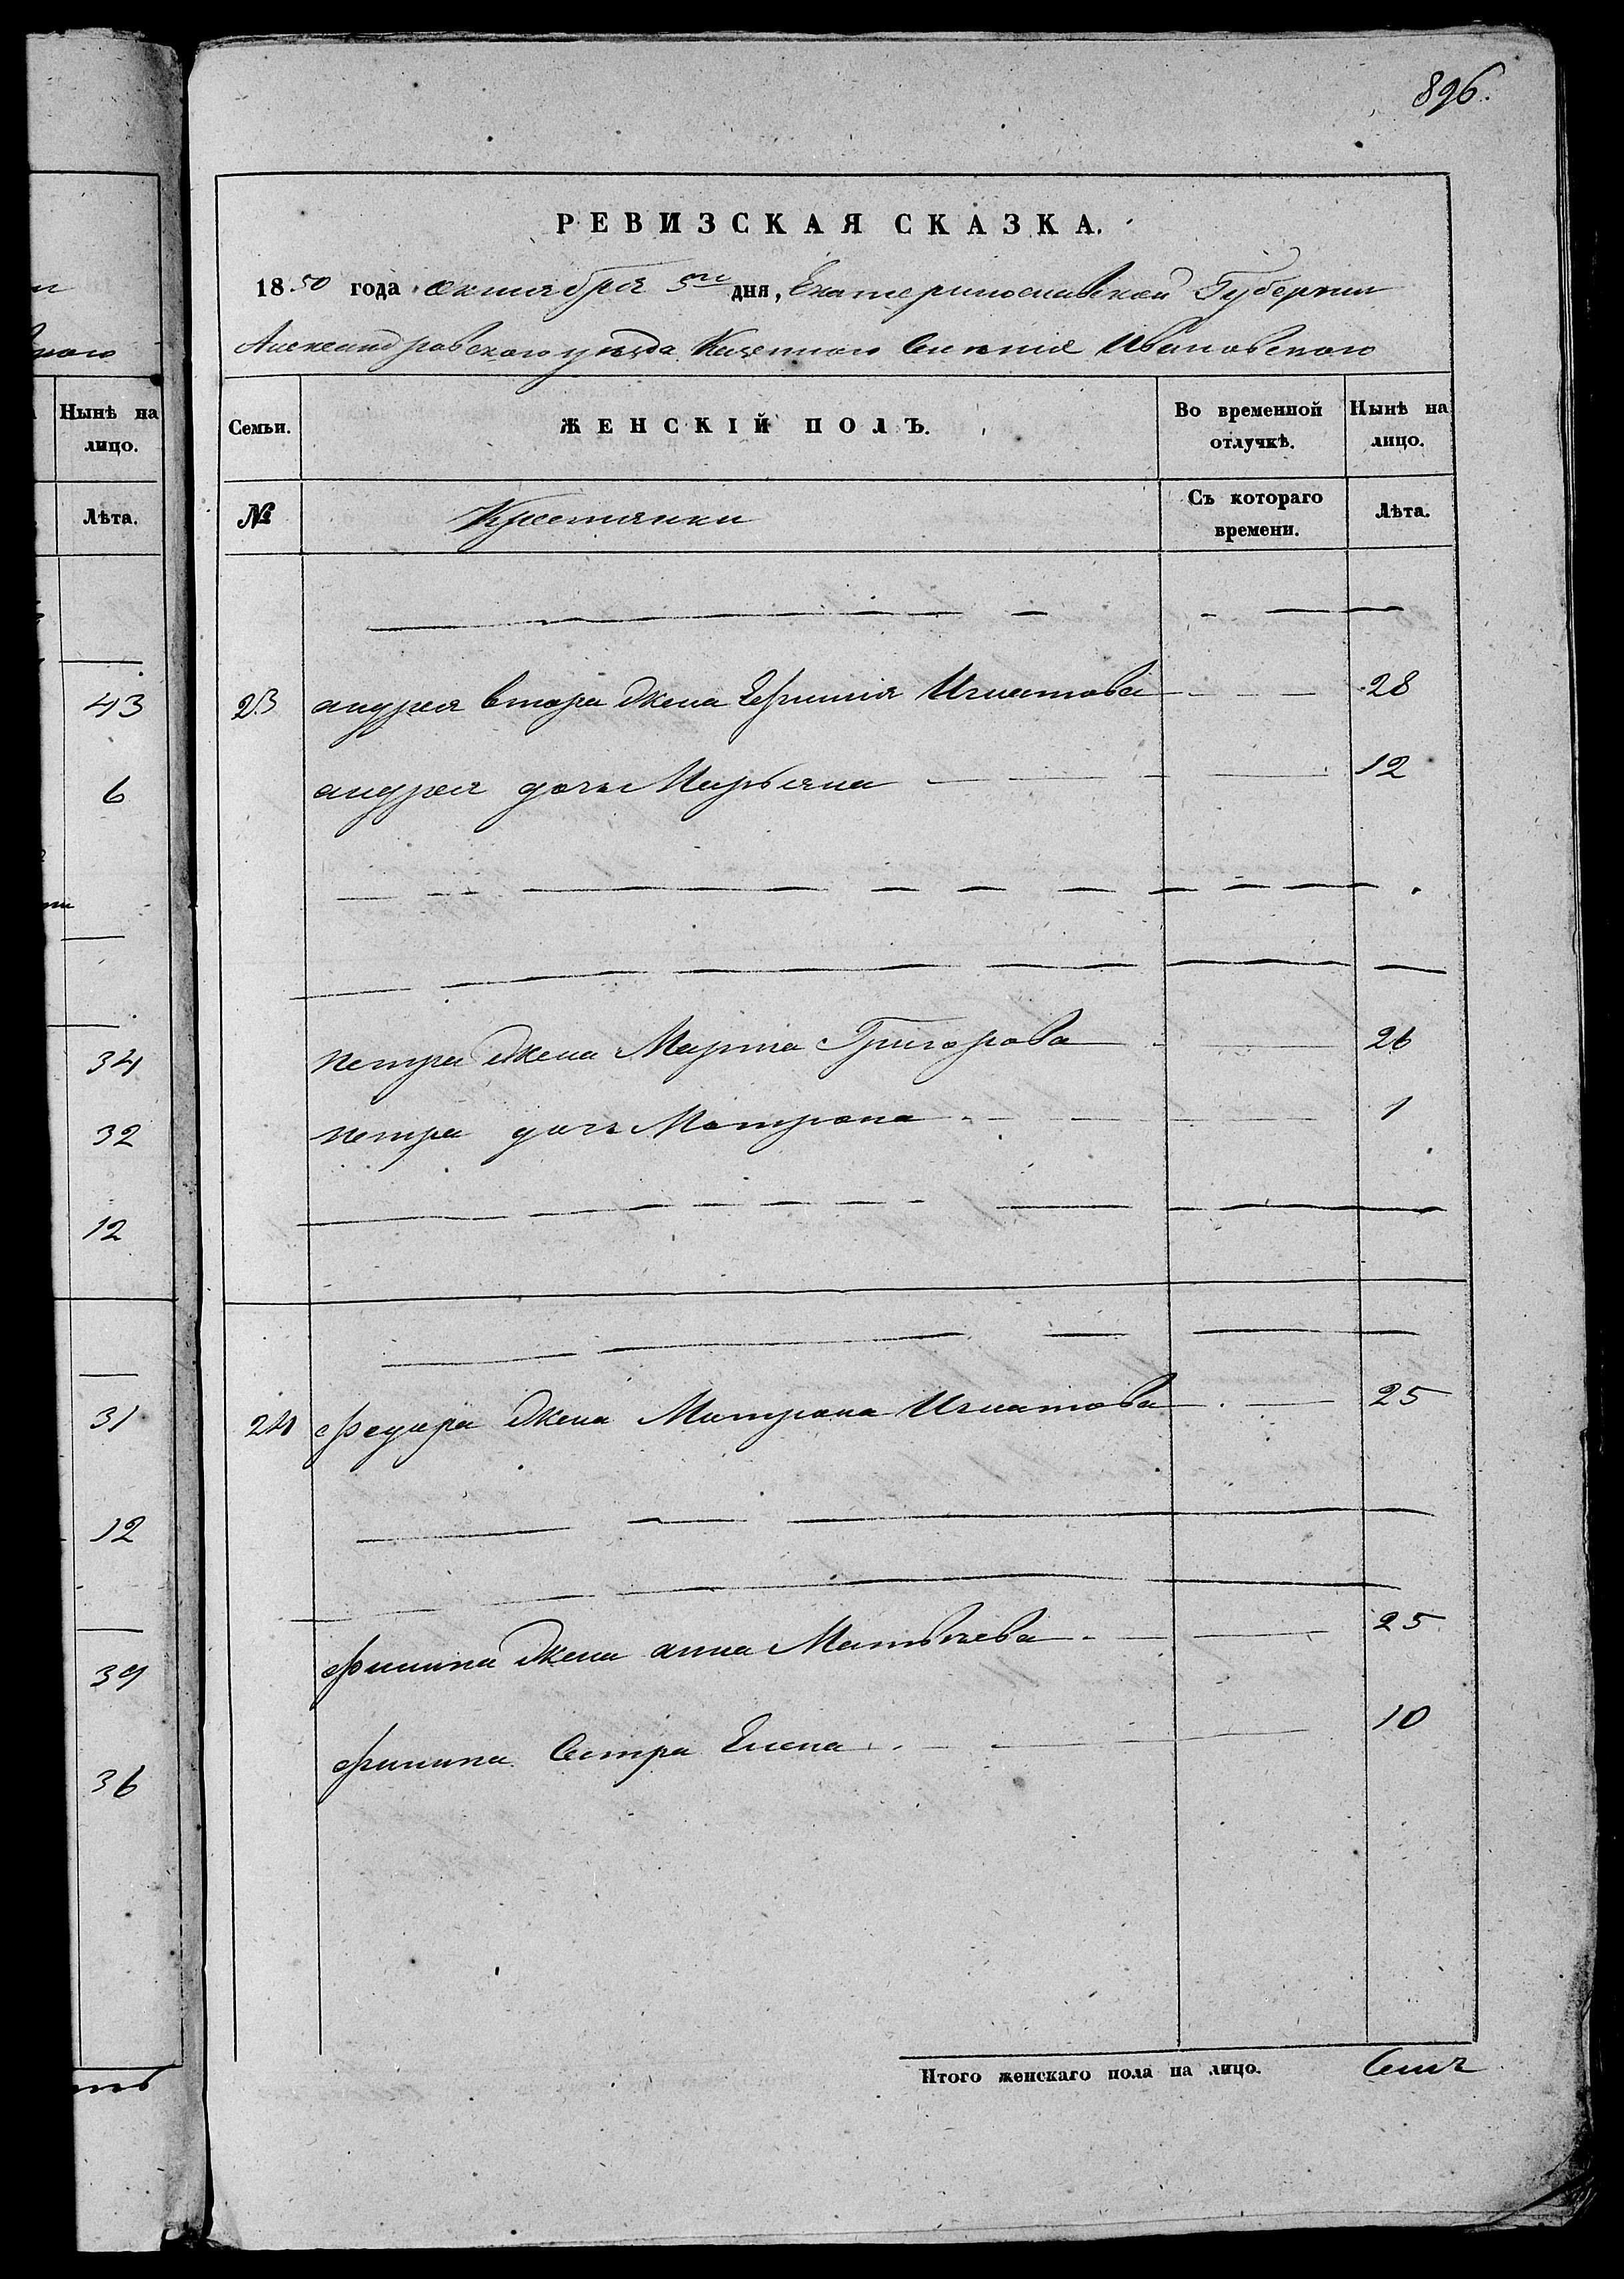 896.
РЕВИЗСКАЯ СКАЗКА.
1850 года октября 5го дня, Екатеринославской Губернии
Александровского уезда Казенного Селения Ивановского
Семьи.
ЖЕНСКІЙ ПОЛЪ.
Во временной отлучкѣ.
Нынѣ на лицо.
№
Крестянки
Съ котораго времени.
Лѣта.
23 андрея втора жена Игнатова 28
андрея дочь Марьяна 12
петра жена Марта Григорова 26
петра дочь Матрона 1
24 Федора жена Матрона Игнатова 25
Филипа жена анна Матвѣева 25
Филипа Сестра Елена 10
Итого женскаго пола на лицо. Семь
Нынѣ на лицо.
Лѣта.
43
6
34
32
12
31
12
39
36